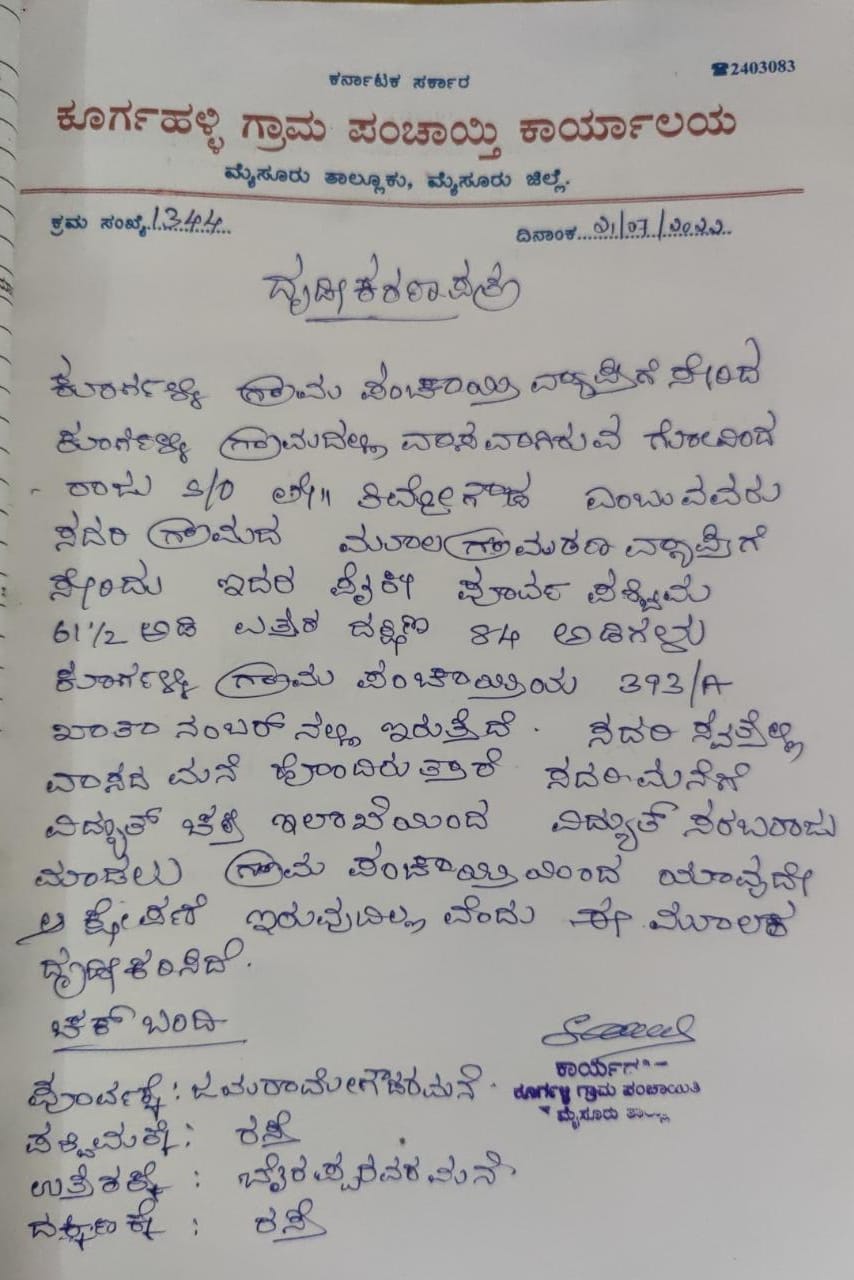 ಕರ್ನಾಟಕ ಸರ್ಕಾರ
☎2403083
ಕೂರ್ಗಹಳ್ಳಿ ಗ್ರಾಮ ಪಂಚಾಯ್ತಿ ಕಾರ್ಯಾಲಯ
ಮೈಸೂರು ತಾಲ್ಲೂಕು, ಮೈಸೂರು ಜಿಲ್ಲೆ.
ಕ್ರಮ ಸಂಖ್ಯೆ/344
ದಿನಾಂಕ...21/07/2022..
ದೃಢೀಕರಣ ಪತ್ರ
ಕೂರ್ಗಳ್ಳಿ ಗ್ರಾಮ ಪಂಚಾಯ್ತಿ ವ್ಯಾಪ್ತಿಗೆ ಸೇರಿದ
ಕೂರ್ಗಳ್ಳಿ ಗ್ರಾಮದಲ್ಲಿ ವಾಸವಾಗಿರುವ ಗೋವಿಂದ
ರಾಜು S/O ಲೇ॥ ತಿಮ್ಮೇಗೌಡ ಎಂಬುವವರು
ಸದರಿ ಗ್ರಾಮದ ಮೂಲ ಗ್ರಾಮಠಾಣ ವ್ಯಾಪ್ತಿಗೆ
ಸೇರಿದು ಇದರ ಪೈಕಿ ಪೂರ್ವ ಪಶ್ಚಿಮ
61½ ಅಡಿ ಉತ್ತರ ದಕ್ಷಿಣ 84 ಅಡಿಗಳು
ಕೂರ್ಗಳ್ಳಿ ಗ್ರಾಮ ಪಂಚಾಯ್ತಿಯ 393/A
ಖಾತಾ ನಂಬರ್ ನಲ್ಲಿ ಇರುತ್ತದೆ. ಸದರಿ ಸ್ವತ್ತಲ್ಲಿ
ವಾಸದ ಮನೆ ಹೊಂದಿರುತ್ತಾರೆ ಸದರಿ ಮನೆಗೆ
ವಿದ್ಯುತ್ ಚಕ್ತಿ ಇಲಾಖೆಯಿಂದ ವಿದ್ಯುತ್ ಸರಬರಾಜು
ಮಾಡಲು ಗ್ರಾಮ ಪಂಚಾಯ್ತಿಯಿಂದ ಯಾವುದೇ
ಆಕ್ಷೇಪಣೆ ಇರುವುದಿಲ್ಲ ವೆಂದು ಈ ಮೂಲಕ
ದೃಢೀಕರಿಸಿದೆ.
ಚಕ್ ಬಂದಿ
ಪೂರ್ವಕ್ಕೆ : ಜವರಾಮೇಗೌಡರ ಮನೆ.
ಪಶ್ಚಿಮಕ್ಕೆ : ರಸ್ತೆ
ಉತ್ತರಕ್ಕೆ : ಬೈರಪ್ಪರವರ ಮನೆ
ದಕ್ಷಿಣಕ್ಕೆ : ರಸ್ತೆ
ಕೂರ್ಗಳ್ಳಿ ಗ್ರಾಮ ಪಂಚಾಯಿತಿ
ಮೈಸೂರು